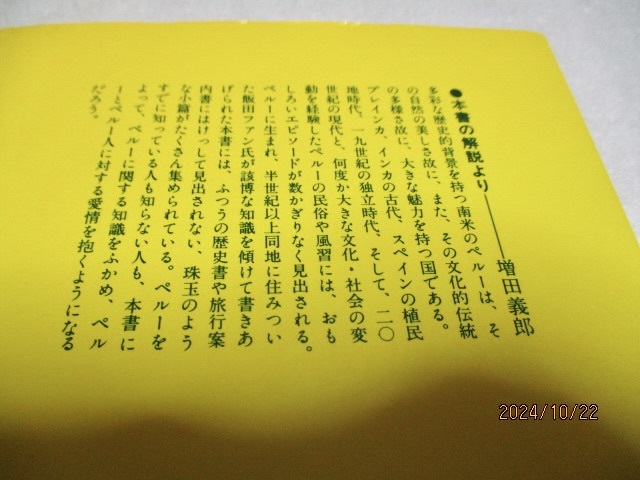 ●本書の解説より――増田義郎
多彩な歴史的背景を持つ南米のペルーは、そ
の自然の美しさ故に、また、その文化的伝統
の多様さ故に、大きな魅力を持つ国である。
プレインカ、インカの古代、スペインの植民
地時代、一九世紀の独立時代、そして、二〇
世紀の現代と、何度か大きな文化・社会の変
動を経験したペルーの民俗や風習には、おも
しろいエピソードが数かぎりなく見出される。
ペルーに生まれ、半世紀以上同地に住みつい
た飯田ファン氏が該博な知識を傾けて書きあ
げられた本書には、ふつうの歴史書や旅行案
内書にはけっして見出されない、珠玉のよう
な小篇がたくさん集められている。ペルーを
すでに知っている人も知らない人も、本書に
よって、ペルーに関する知識をふかめ、ペル
ーとペルー人に対する愛情を抱くようになる
だろう。
2024/10/22